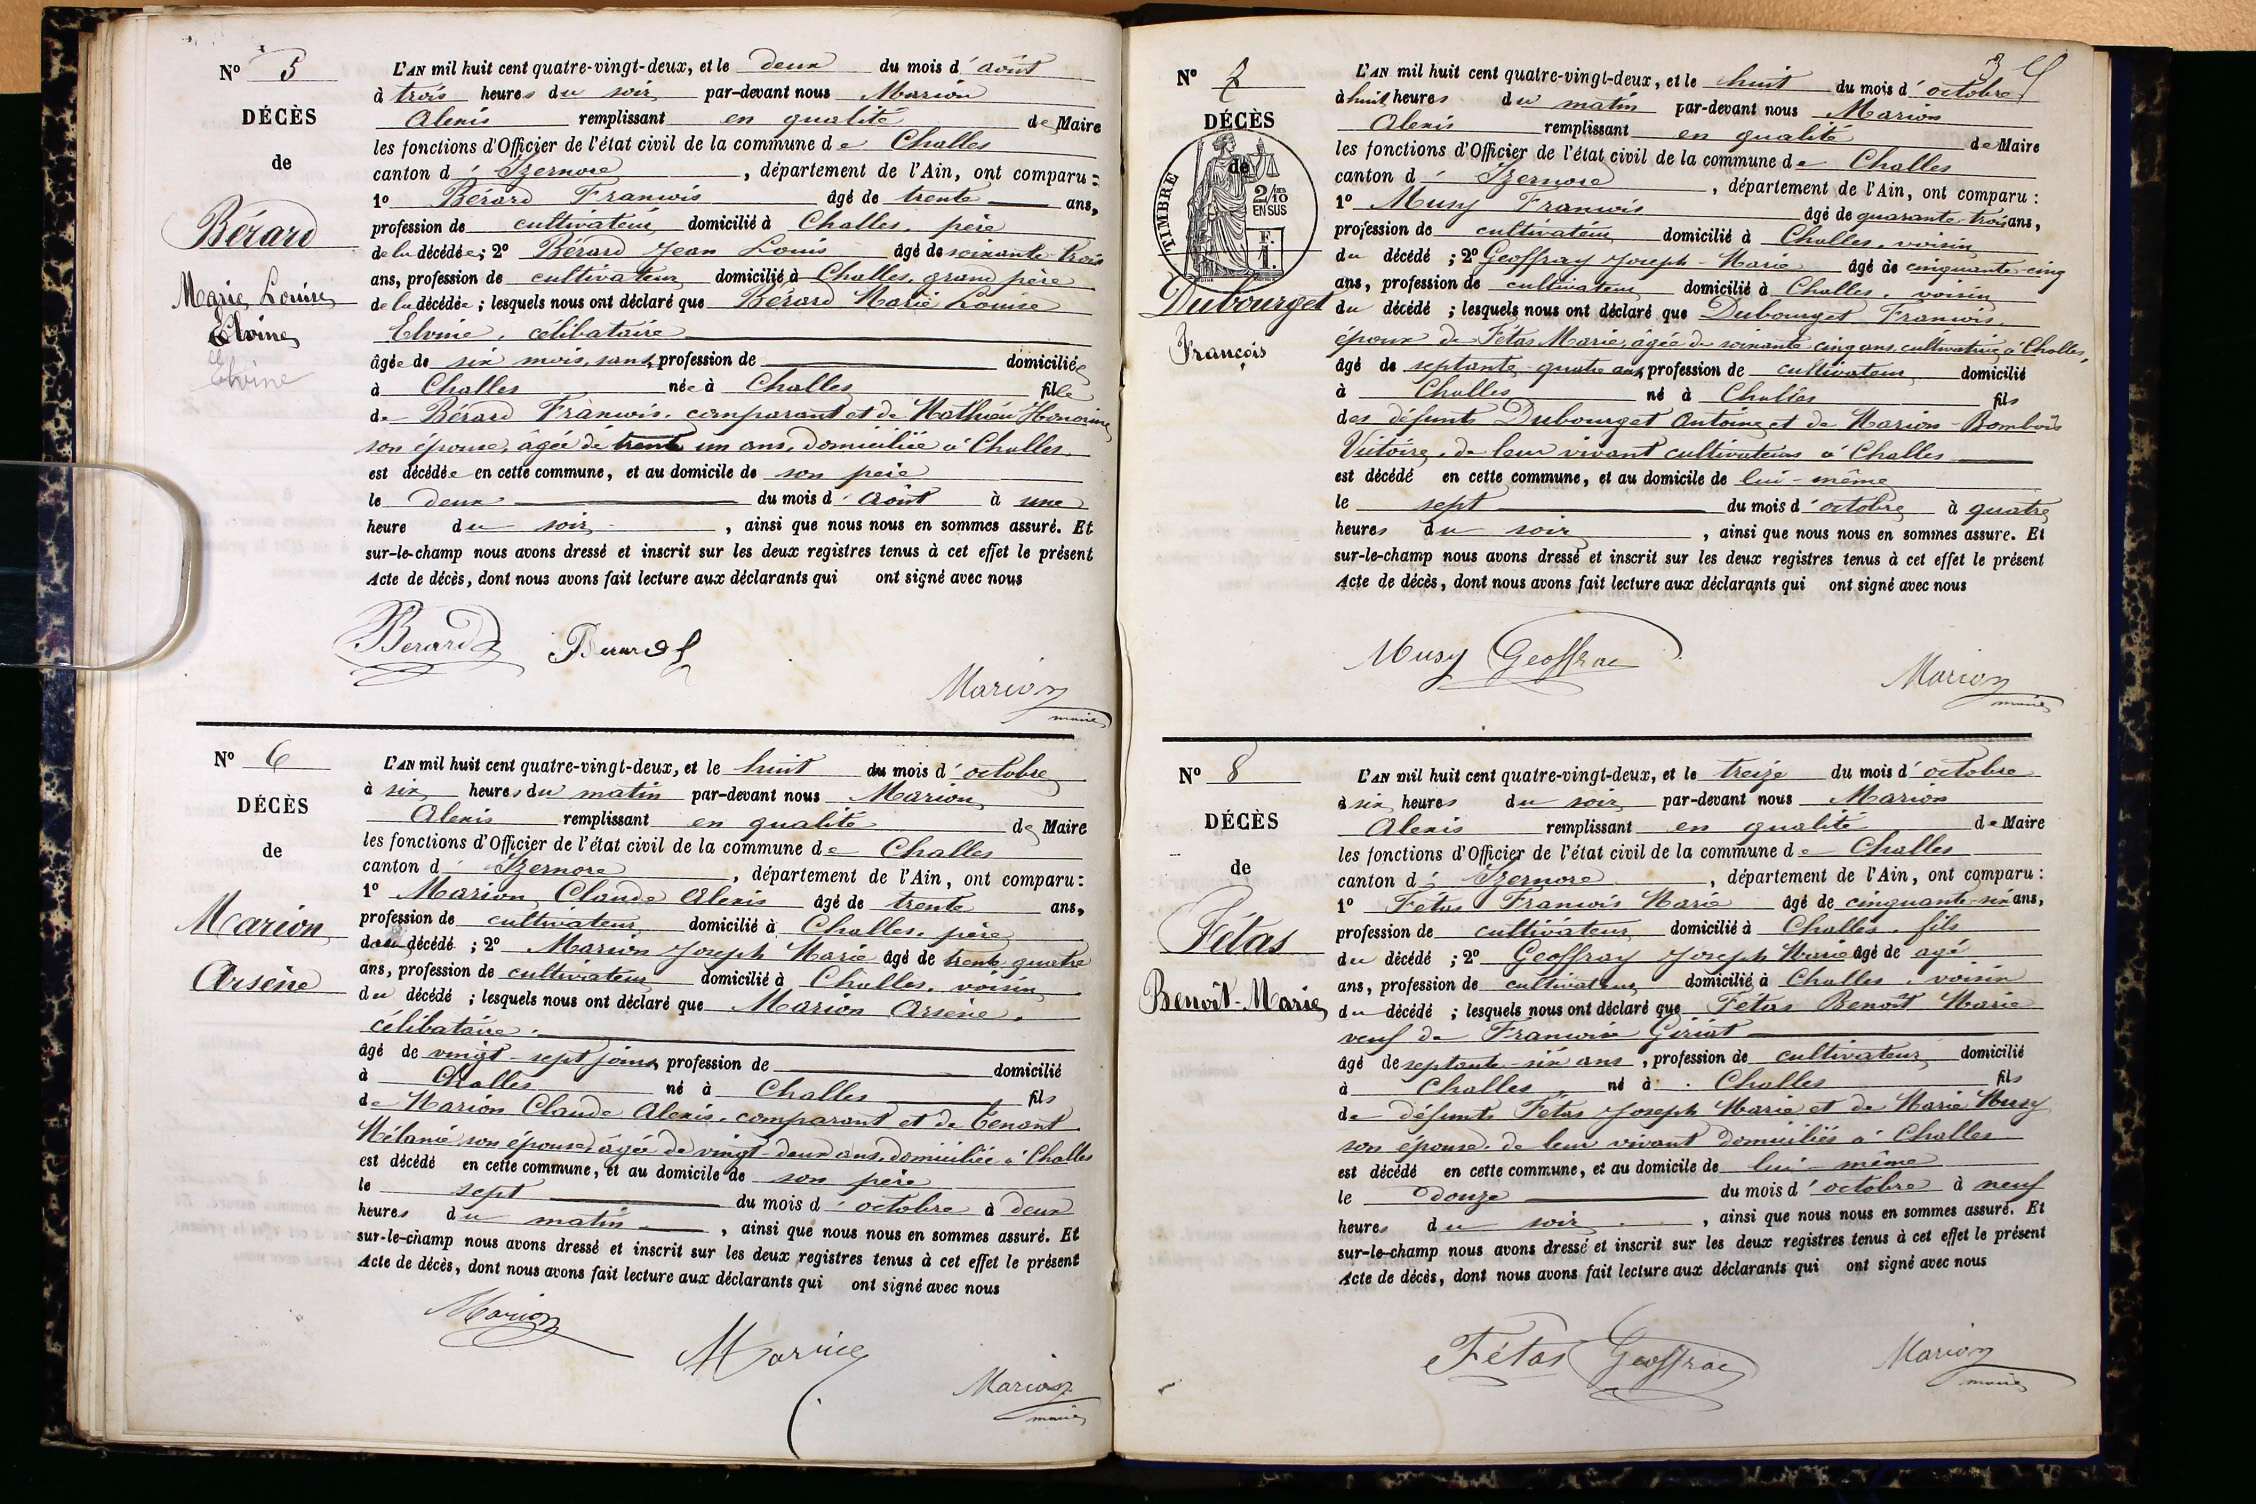 N° 5
DÉCÈS
de
Bérard
Marie Louise
Elvine
Elvine
L'AN mil huit cent quatre-vingt-deux, et le deux du mois d'août
à trois heures du soir par-devant nous Marion
Alexis remplissant en qualité de Maire
les fonctions d'Officier de l'état civil de la commune de Challes
canton d'Izernore, département de l'Ain, ont comparu :
1° Bérard Francois âgé de trente ans,
profession de cultivateur domicilié à Challes, père
de la décédée; 2° Bérard Jean Louis âgé de soixante-trois
ans, profession de cultivateur domicilié à Challes, grand père
de la décédée; lesquels nous ont déclaré que Bérard Marie Louise
Elvine, célibataire
âgée de six mois, sans profession de domiciliée
à Challes née à Challes fille
de Bérard Francois, comparant et de Mathieu Honorine
son épouse, âgée de trente un ans, domiciliée à Challes
est décédée en cette commune, et au domicile de son père
le deux du mois d'Août à une
heure du soir, ainsi que nous nous en sommes assuré. Et
sur-le-champ nous avons dressé et inscrit sur les deux registres tenus à cet effet le présent
Acte de décès, dont nous avons fait lecture aux déclarants qui ont signé avec nous
Berard
Marion
maire
N° 6
DÉCÈS
de
Marion
Arsène
L'AN mil huit cent quatre-vingt-deux, et le huit du mois d'octobre
à six heures du matin par-devant nous Marion
Alexis remplissant en qualité de Maire
les fonctions d'Officier de l'état civil de la commune de Challes
canton d'Izernore, département de l'Ain, ont comparu :
1° Marion Claude Alexis âgé de trente ans,
profession de cultivateur domicilié à Challes, père
du décédé; 2° Marion Joseph Marie âgé de trente quatre
ans, profession de cultivateur domicilié à Challes, voisin
du décédé; lesquels nous ont déclaré que Marion Arsène,
célibataire.
âgé de vingt-sept jours, profession de domicilié
à Challes né à Challes fils
de Marion Claude Alexis, comparant et de Tenant
Mélanie son épouse, âgée de vingt-deux ans, domiciliée à Challes
est décédé en cette commune, et au domicile de son père
le sept du mois d'octobre à deux
heures du matin, ainsi que nous nous en sommes assuré. Et
sur-le-champ nous avons dressé et inscrit sur les deux registres tenus à cet effet le présent
Acte de décès, dont nous avons fait lecture aux déclarants qui ont signé avec nous
Marion
Marion
maire
N° 7
DÉCÈS
de
TIMBRE
2/10
EN SUS
F.
1
Dubourget
François
L'AN mil huit cent quatre-vingt-deux, et le huit du mois d'octobre
à huit heures du matin par-devant nous Marion
Alexis remplissant en qualité de Maire
les fonctions d'Officier de l'état civil de la commune de Challes
canton d'Izernore, département de l'Ain, ont comparu :
1° Musy Francois âgé de quarante-trois ans,
profession de cultivateur domicilié à Challes, voisin
du décédé; 2° Geoffray Joseph-Marie âgé de cinquante-cinq
ans, profession de cultivateur domicilié à Challes, voisin
du décédé; lesquels nous ont déclaré que Dubourget Francois,
époux de Fétas Marie, âgée de soixante cinq ans, cultivatrice à Challes,
âgé de septante-quatre ans, profession de cultivateur domicilié
à Challes né à Challes fils
des défunts Dubourget Antoine et de Marion-Bombois
Victoire, de leur vivant cultivateurs à Challes
est décédé en cette commune, et au domicile de lui-même
le sept du mois d'octobre à quatre
heures du soir, ainsi que nous nous en sommes assuré. Et
sur-le-champ nous avons dressé et inscrit sur les deux registres tenus à cet effet le présent
Acte de décès, dont nous avons fait lecture aux déclarants qui ont signé avec nous
Musy Geoffrae
Marion
maire
N° 8
DÉCÈS
de
Fétas
Benoît-Marie
L'AN mil huit cent quatre-vingt-deux, et le treize du mois d'octobre
à six heures du soir par-devant nous Marion
Alexis remplissant en qualité de Maire
les fonctions d'Officier de l'état civil de la commune de Challes
canton d'Izernore, département de l'Ain, ont comparu :
1° Fétas Francois Marie âgé de cinquante-six ans,
profession de cultivateur domicilié à Challes, fils
du décédé; 2° Geoffray Joseph Marie âgé de agé
ans, profession de cultivateur domicilié à Challes, voisin
du décédé; lesquels nous ont déclaré que Fétas Benoît Marie
veuf de Francoise Giriat
âgé de septante-six ans, profession de cultivateur domicilié
à Challes né à Challes fils
de défunts Fétas Joseph Marie et de Marie Musy
son épouse, de leur vivant domiciliés à Challes
est décédé en cette commune, et au domicile de lui-même
le douze du mois d'octobre à neuf
heures du soir, ainsi que nous nous en sommes assuré. Et
sur-le-champ nous avons dressé et inscrit sur les deux registres tenus à cet effet le présent
Acte de décès, dont nous avons fait lecture aux déclarants qui ont signé avec nous
Fétas Geoffrae
Marion
maire